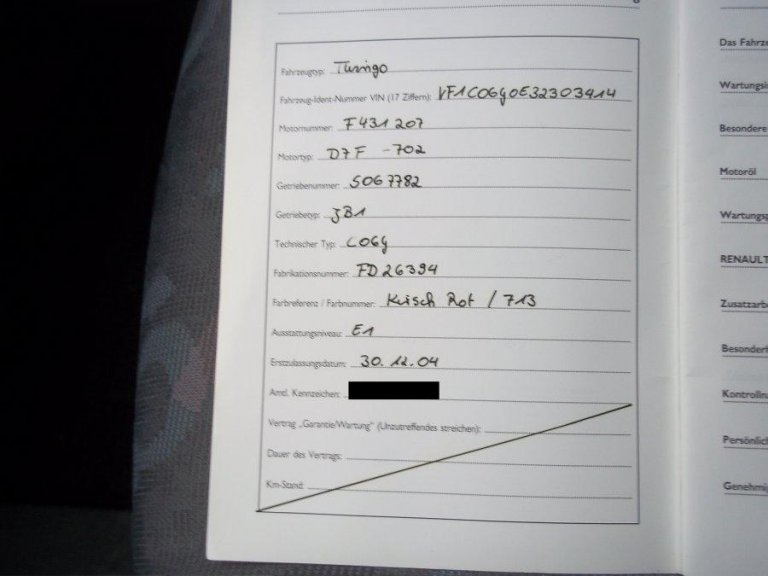 Fahrzeugtyp: Twingo
Fahrzeug-Ident-Nummer VIN (17 Ziffern): VF1C06G0E32303414
Motornummer: F431207
Motortyp: D7F -702
Getriebenummer: S067782
Getriebetyp: JB1
Technischer Typ: C06G
Fabrikationsnummer: FD26394
Farbreferenz / Farbnummer: Kirsch Rot / 713
Ausstattungsniveau: E1
Erstzulassungsdatum: 30.12.04
Amtl. Kennzeichen:
Vertrag „Garantie/Wartung" (Unzutreffendes streichen):
Dauer des Vertrags:
Km-Stand:
Das Fahrze
Wartungsin
Besondere
Motoröl
Wartungsp
RENAULT
Zusatzarb
Besonderh
Kontrolln
Persönlic
Genehmig